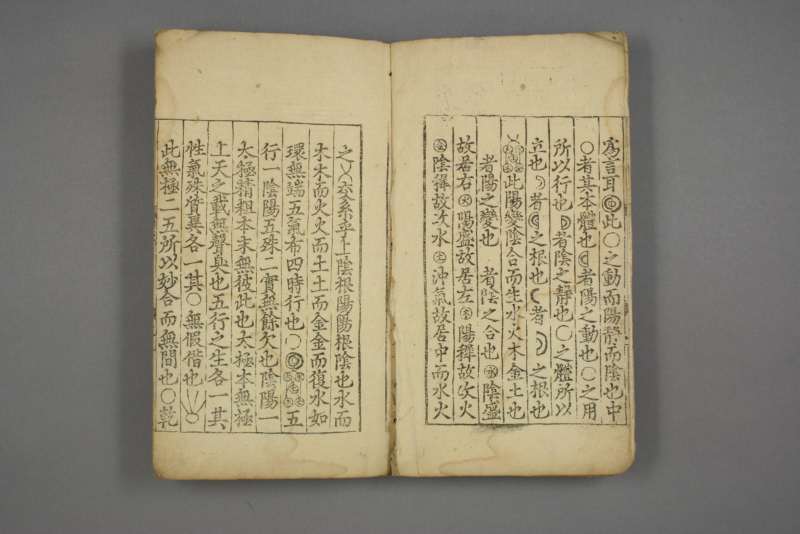 爲言耳◎此〇之動而陽靜而陰也中
〇者其本體也☽者陽之動也〇之用
所以行也☾者陰之靜也〇之體所以
立也☽者☾之根也☾者☽之根也
此陽變陰合而生水火木金土也
者陽之變也 者陰之合也㊌陰盛
故居右㊋陽盛故居左㊍陽穉故次火
㊎陰穉故次水㊏沖氣故居中而水火
之㐅交系乎上陰根陽陽根陰也水而
木木而火火而土土而金金而復水如
環無端五氣布四時行也〇◎五
行一陰陽五殊二實無餘欠也陰陽一
太極精粗本末無彼此也太極本無極
上天之載無聲臭也五行之生各一其
性氣殊質異各一其〇無假借也
此無極二五所以妙合而無間也〇乾